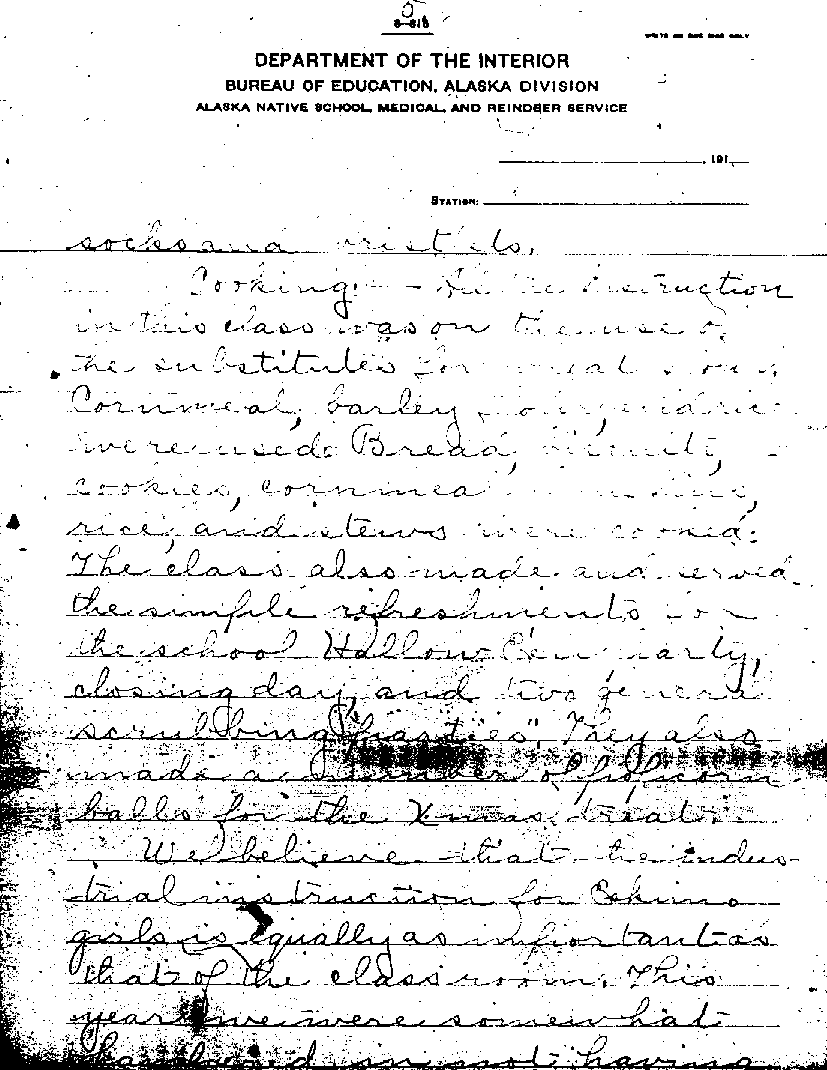 5
WRITE ON ONE SIDE ONLY
DEPARTMENT OF THE INTERIOR
BUREAU OF EDUCATION, ALASKA DIVISION
ALASKA NATIVE SCHOOL, MEDICAL, AND REINDEER SERVICE
, 191
STATION:
socks and wristlets.
Cooking:- instruction
in this class was on the use of
the substitutes for
Cornmeal, barley and rice
were used. Bread, biscuits,
cookies, cornmeal
rice, and stews were cooked.
The class also made and served
the simple refreshments for
the school Hallowe'en party,
closing day, and two general
scrubbing "parties". They also
made a number of popcorn
balls for the Xmas treat.
We believe that the indus-
trial instruction for Eskimo
girls is equally as important as
that of the class room. This
year we were somewhat
in not having